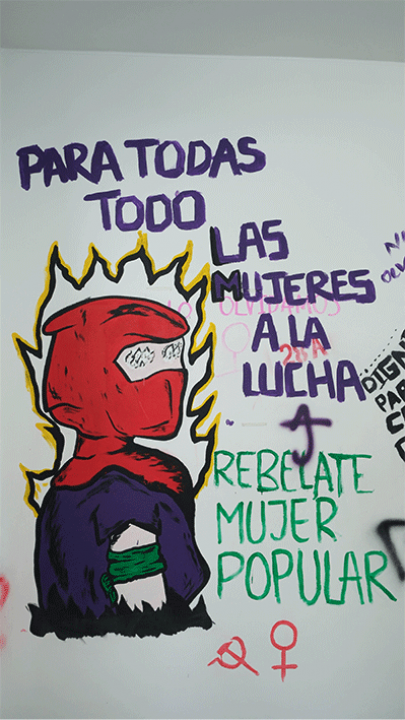 PARA TODAS
TODO
LAS
MUJERES
A LA
LUCHA
OLVIDAMOS
REBELATE
MUJER
POPULAR
DIGN
PAR